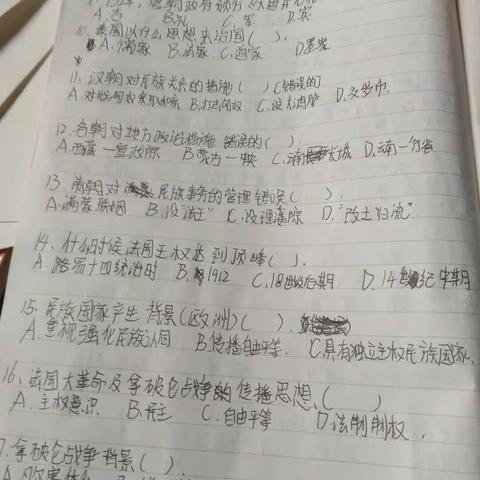 A.吉 B.礼 C.军 D.宾
10.秦国以什么思想来治国( ).
A.儒家 B.法家 C.道家 D.墨家
11.汉朝对民族关系的措施( )(错误的)
A.对匈奴采取和亲 B.打击匈奴 C.设大鸿胪 D.
12.各朝对地方政治措施 错误的( ).
A.西藏—宣政院 B. C.长城 D.云南—行省
13.清朝对民族事务的管理错误( ).
A.满蒙联姻 B.设"法王" C.设理藩院 D."改土归流"
14.什么时候法国王权达到顶峰( ).
A.路易十四统治时 B.1912 C.18世纪后期 D.14世纪中期
15.民族国家产生背景(欧洲)( ).
A.重视强化民族认同 B.传播自由平等. C.具有独立主权民族国家.
16.法国大革命及拿破仑战争的传播思想.( )
A.主权意识 B.民主 C.自由平等 D.法制制权.
7.拿破仑战争背景( ).